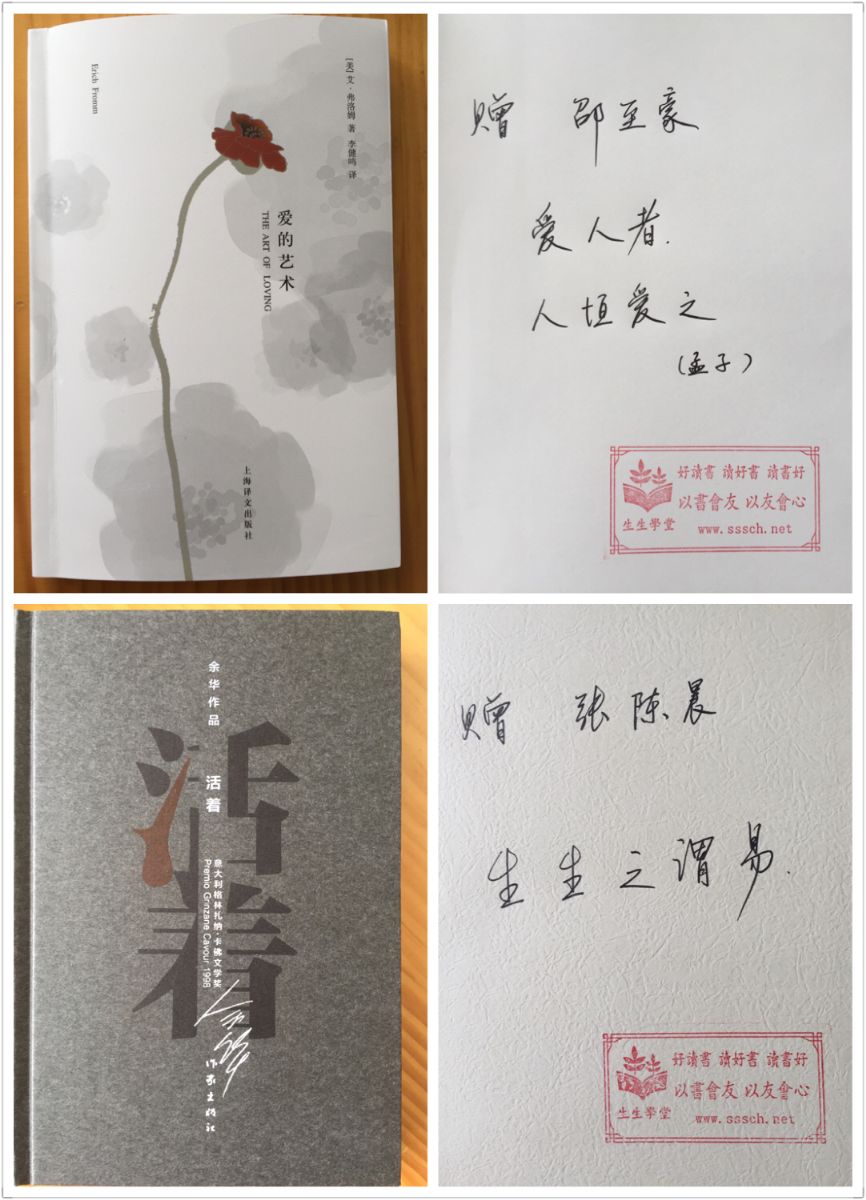 [美]艾·弗洛姆 著 李健鸣 译
爱的艺术
THE ART OF LOVING
上海译文出版社
Erich Fromm
赠 邵至豪
爱人者.
人垣爱之
(孟子)
好讀書 讀好書 讀書好
以書會友 以友會心
生生學堂
www.sssch.net
余华作品
活着
活着
意大利格林扎纳·卡佛文学奖
Premio Grinzane Cavour 1998
余华
作家出版社
赠 张陈晨
生生之谓易.
好讀書 讀好書 讀書好
以書會友 以友會心
生生學堂
www.sssch.net